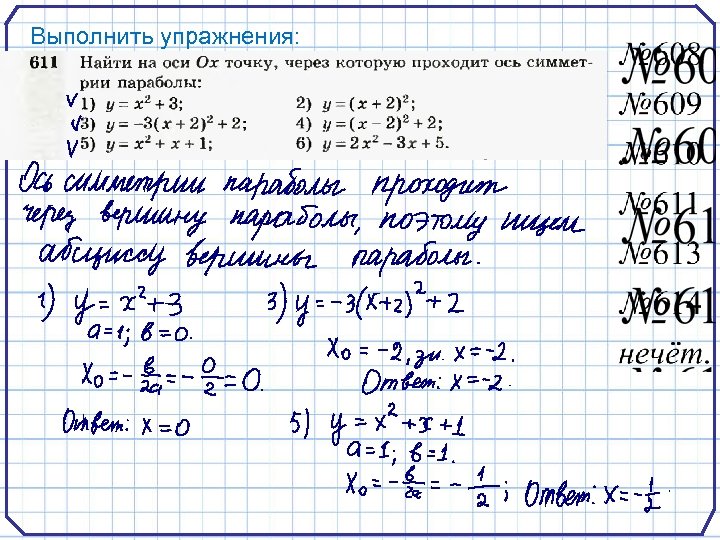 Выполнить упражнения:
611 Найти на оси Ox точку, через которую проходит ось симмет-
рии параболы:
V 1) y = x² + 3; 2) y = (x + 2)²;
V 3) y = −3(x + 2)² + 2; 4) y = (x − 2)² + 2;
V 5) y = x² + x + 1; 6) y = 2x² − 3x + 5.
№608
№609
№610
№611
№613
№614
нечёт.
Ось симметрии параболы проходит
через вершину параболы, поэтому ищем
абсциссу вершины параболы.
1) y = x² + 3
a = 1; в = 0.
x₀ = − в/2a = − 0/2 = 0.
Ответ: x = 0
3) y = −3(x+2)² + 2
x₀ = −2, зн. x = −2.
Ответ: x = −2.
5) y = x² + x + 1
a = 1; в = 1.
x₀ = − в/2a = − 1/2; Ответ: x = − 1/2